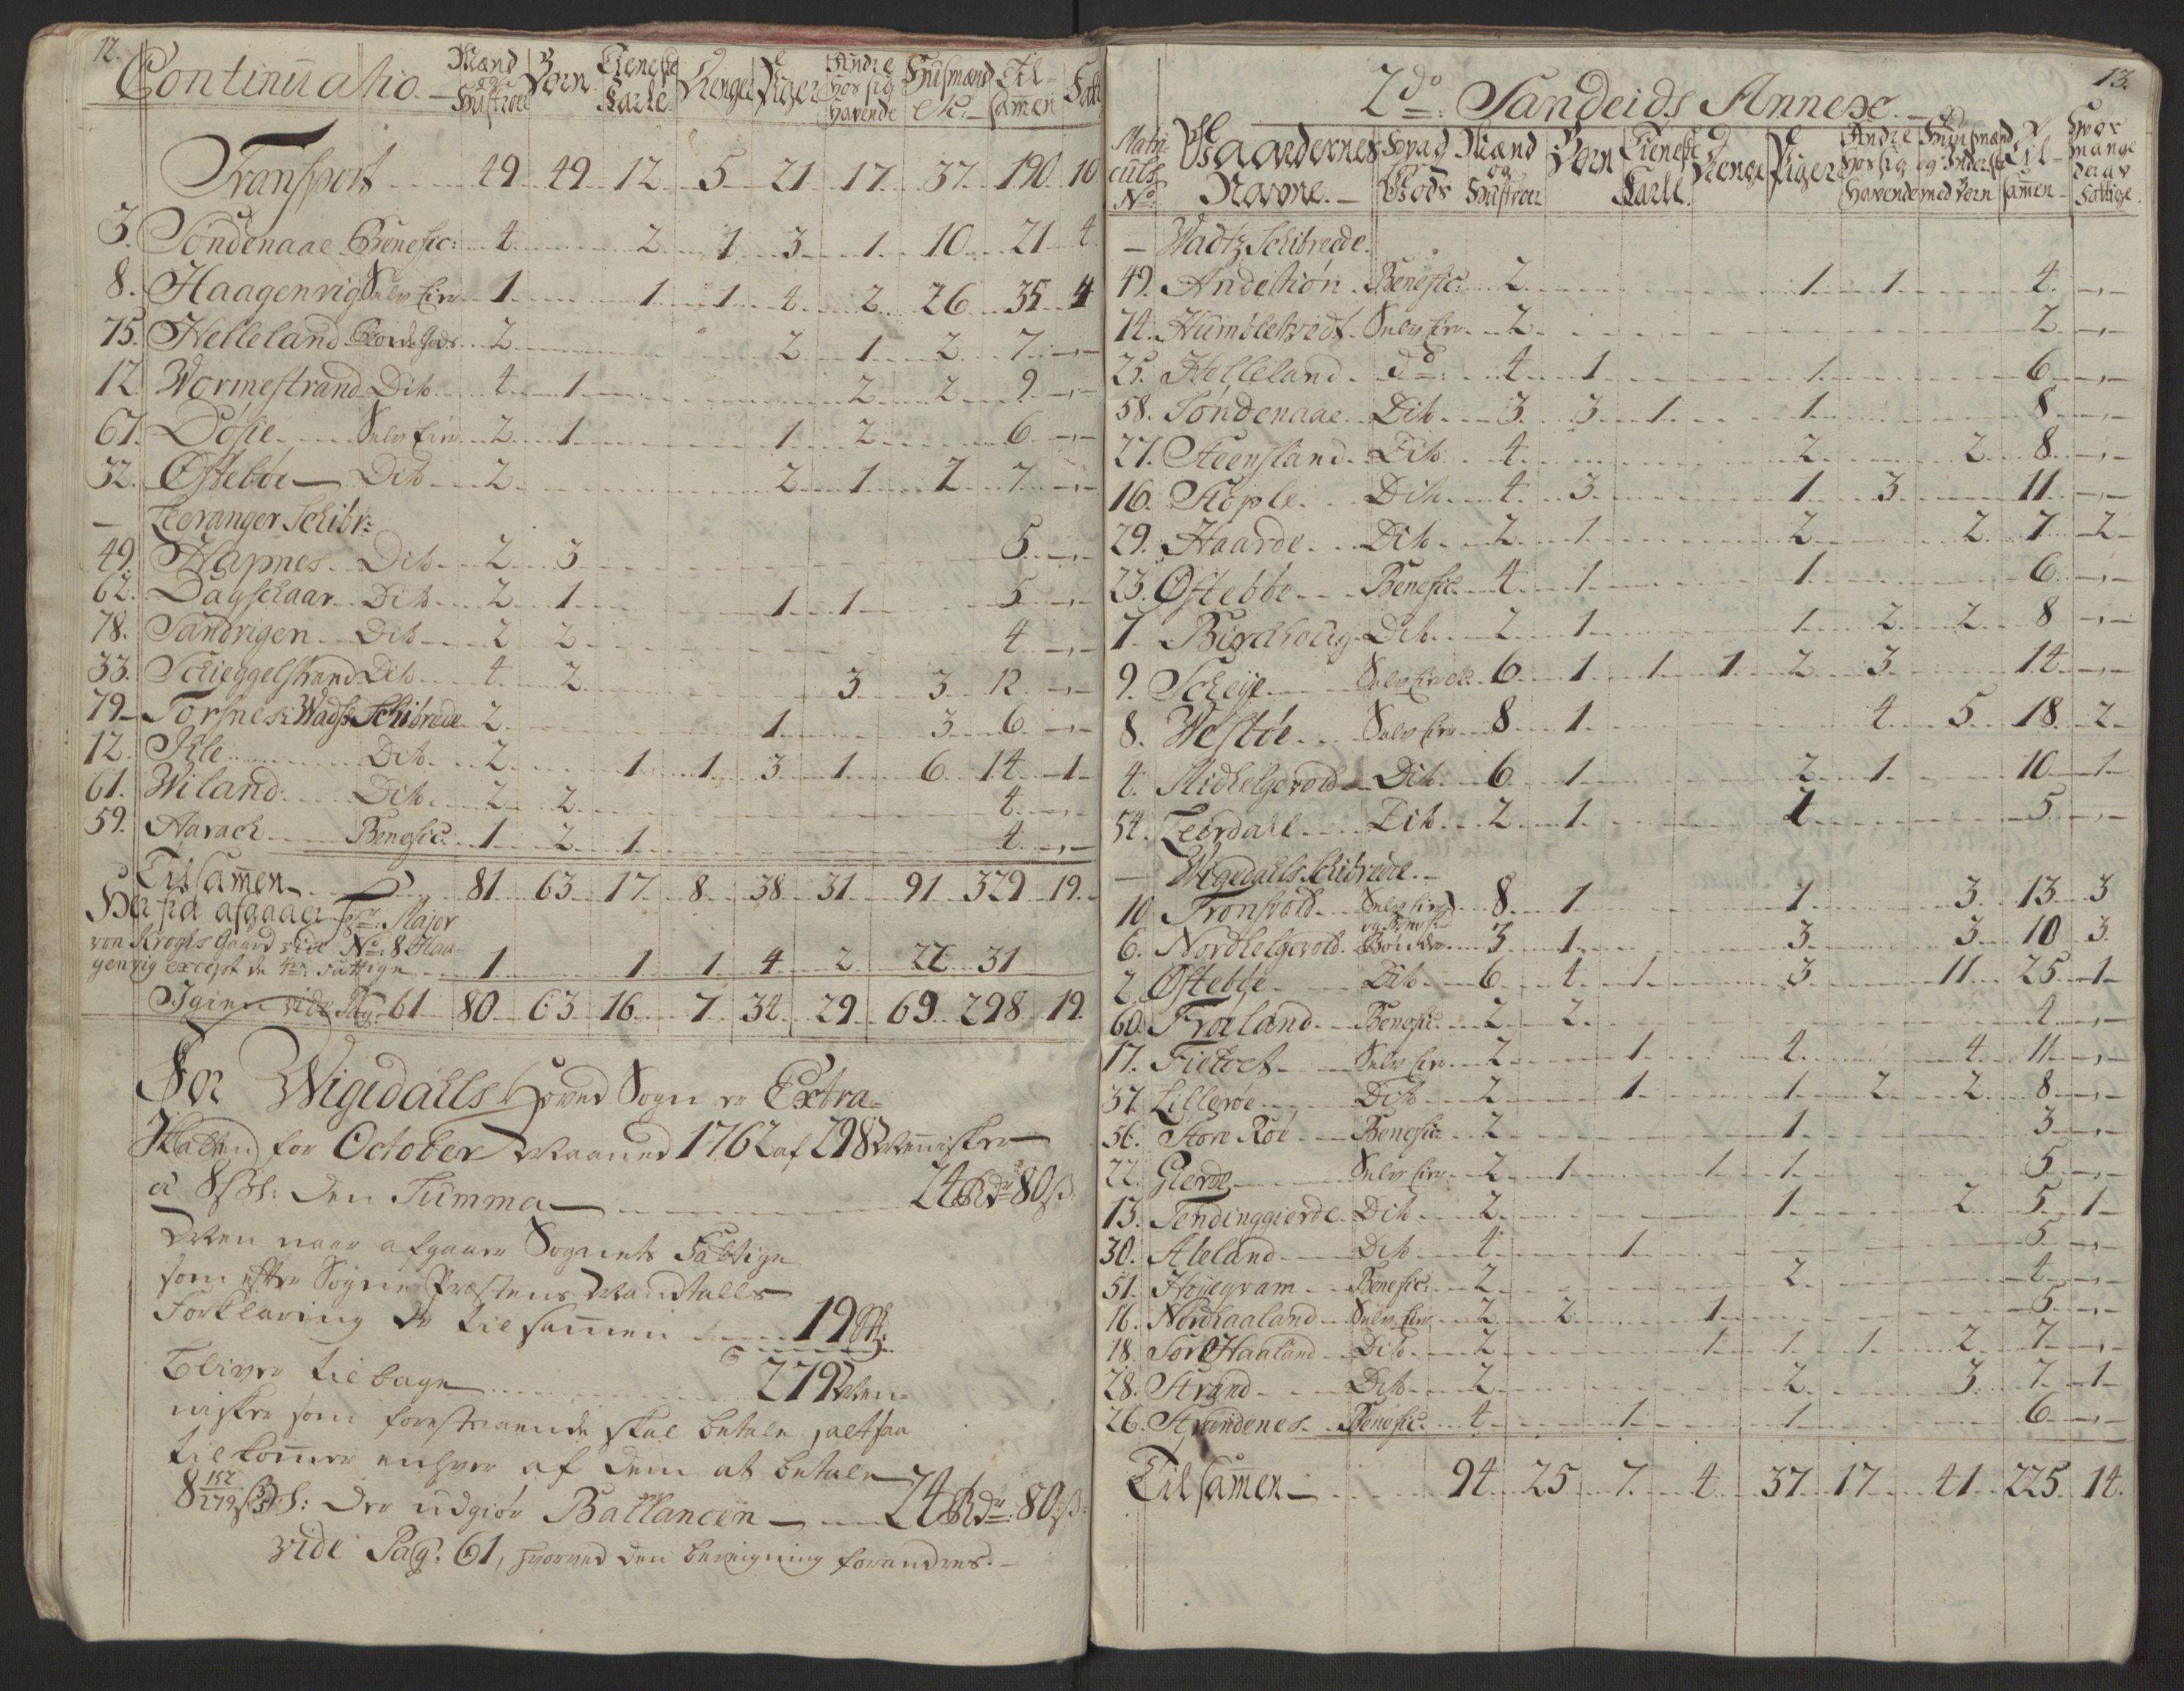 12.
Continuatio. Mænd og Hustroer Børn Tieneste Karle Drenge Piger Andre hos sig havende Huusmænd etc: Til- samen Fatt
Transport 49 49 12 5 21 17 37 190 10
3. Söndenaae Benefic: 4 2 1 3 1 10 21 4
8. Haagenvig Selv Eier 1 1 1 4 2 26 35 4
75. Helleland Bonde Gods 2 2 1 2 7 -,-
12. Wormestrand Dito 4 1 2 2 9 -,-
67. Döske Selv Eier 2 1 1 2 6 -,-
32. Østebøe Dito 2 2 1 2 7 -,-
— Leeranger Schibr:
49. Napnes Dito 2 3 5 -,-
62. Dagschaar Dito 2 1 1 1 5 -,-
78. Sandvigen Dito 2 2 4 -,-
33. Schieggelstrand Dito 4 2 3 3 12 -,-
79 Torsnes: Wads Schibrede 2 1 3 6 -,-
12. Ihle Dito 2 1 1 3 1 6 14 1
61. Wiland Dito 2 2 4 -,-
59. Aarach Benefic: 1 2 1 4 -,-
Tilsamen 81 63 17 8 38 31 91 329 19
Her fra afgaaer Hr: Major
von Kroghs Gaard vide No: 8 Haa-
genvig except de 4re fattige 1 1 1 4 2 22 31
Igien vide Pag: 61 80 63 16 7 34 29 69 298 19.
For Wigedahls Hoved Sogn er Extra-
Skatten for October Maaned 1762 af 298 Mennisker
à 8 sk: den Summa 24 Rdr: 80 s:
Men naar afgaaer Sognets Fattige
som efter Sogne Præstens Mandtalls
Forklaring er tilsammen 19 St:
bliver tilbage 279 Men-
nisker som forestaaende skal betale, altsaa
tilkommer enhver af dem at betale
8 152/279 sk: der udgiør Ballancen 24 Rdr: 80 s:
vide Pag: 61, hvorved den beregning forandres.
13.
2do: Sandeids Annexe.
Matri- culs No. Gaardernes Navne. Hvad Gods Mænd og Hustroer Børn Tieneste Karle. Drenge Piger Andre hos sig havende Huusmænd og Inderste med Børn Til- samen Hvor mange deraf Fattige.
— Wadtz Schibrede.
49. Andetiön Benefic: 2 1 1 4 -,-
74. Humbletvedt Selv Eier 2 2 -,-
25. Helleland do: 4 1 1 6 -,-
58. Söndenaae Dito 3 3 1 1 8 -,-
27. Steensland Dito 4 2 2 8 -,-
16. Stople Dito 4 3 1 3 11 -,-
29. Haarde Dito 2 1 2 2 7 2
23. Østebøe Benefic: 4 1 1 6 -,-
7. Birchoug Dito 2 1 1 2 2 8 -,-
9. Scheije Selv Eier etc. 6 1 1 1 2 3 14 -,-
8. Westöe Selv Eier 8 1 4 5 18 2
4. Midhelgevold Dito 6 1 2 1 10 1
54. Leerdall Dito 2 1 2 5 -,-
— Wigedahls Schibrede.
10. Tronsvold Selv Eier og Benef: 8 1 1 3 13 3
6. Nordhelgevold Bonde 3 1 3 3 10 3.
2. Østeböe Dito 6 4 1 3 11 25 1
60. Fröeland Benefic: 2 2 4 -,-
17. Fieltoet Selv Eier 2 1 4 4 11 -,-
37. Lilleröe Dito 2 1 1 2 2 8 -,-
56. Store Röe Benefic: 2 1 3 -,-
22. Gierde Selv Eier 2 1 1 1 5 -,-
13. Tendinggierde Dito 2 1 2 5 1
30. Aleland Dito 4 1 5 -,-
51. Høyegvam Benefic: 2 2 4 -,-
16. Nordhaaland Selv Eier 2 2 1 5 -,-
18. Sör Haaland Dito 2 1 1 1 2 7 -,-
28. Strand Dito 2 2 3 7 1
26. Strandenes Benefic: 4 1 1 6 -,-
Tilsamen 94 25 7 4 37 17 41 225 14.